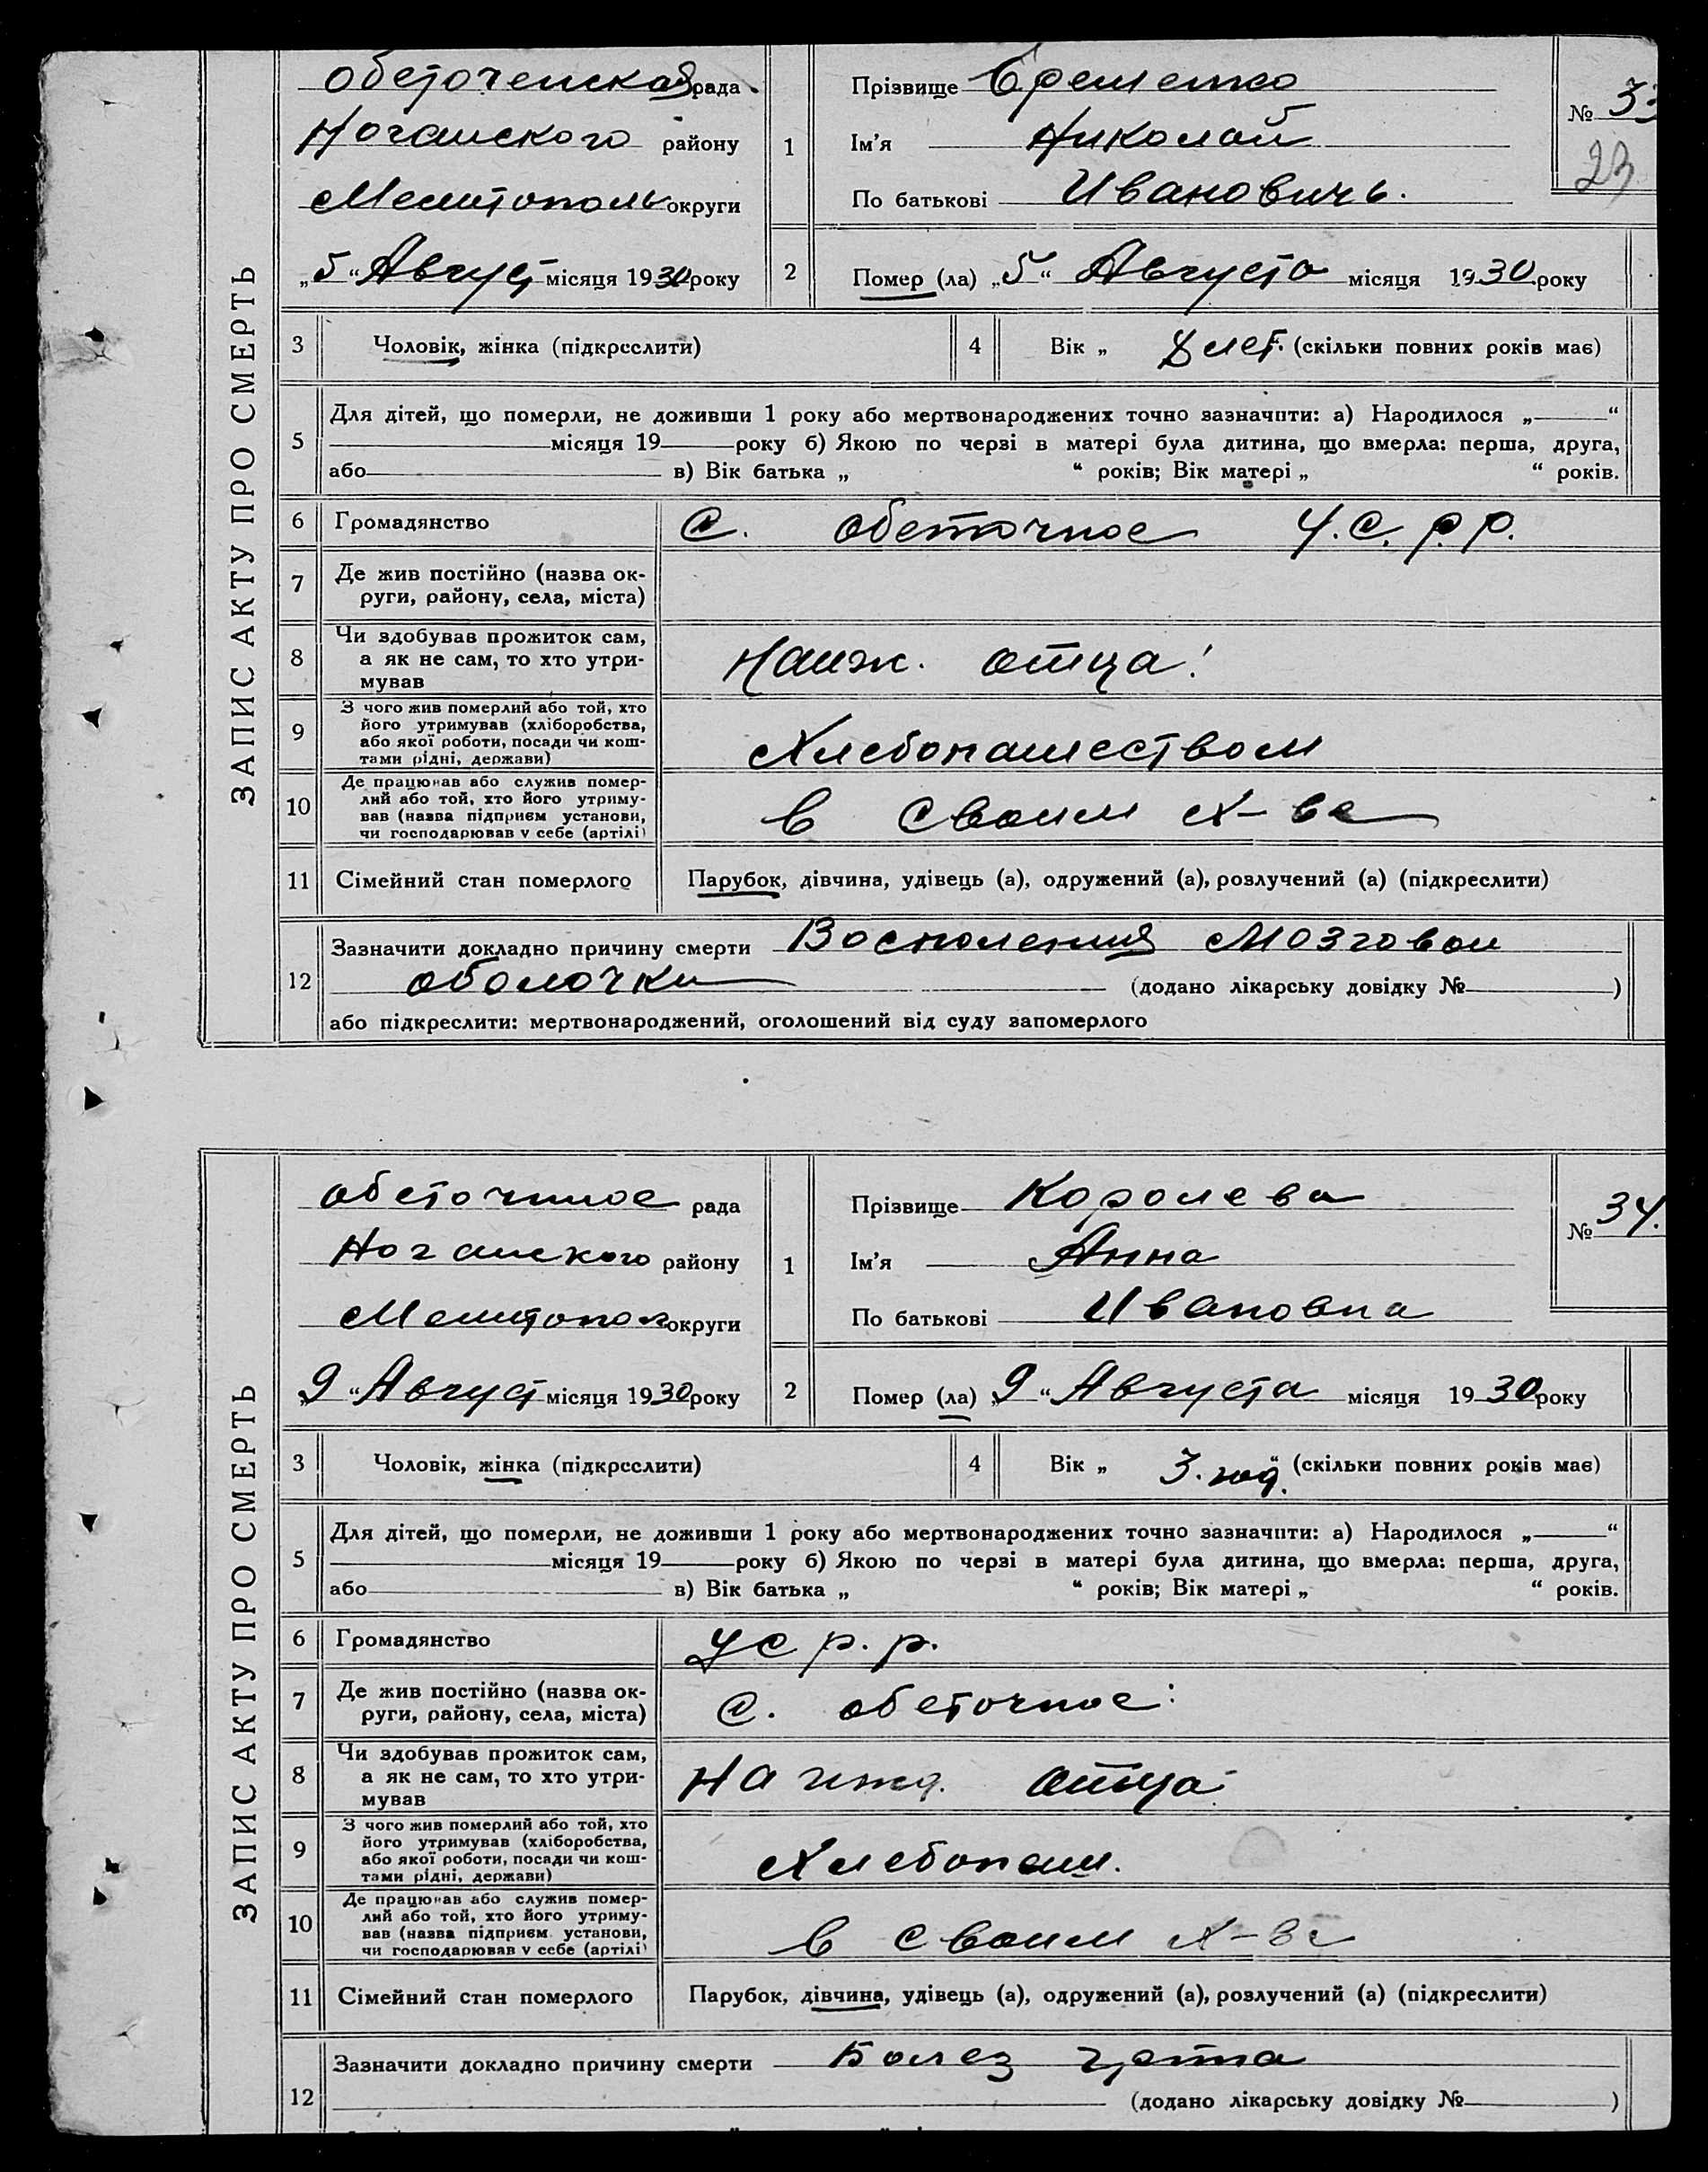 ЗАПИС АКТУ ПРО СМЕРТЬ
Обеточенская рада
Ногайского району
Мелитополь округи
„5“ Август місяця 1930 року
1
Прізвище Еременко
Ім’я Николай
По батькові Ивановичь.
№ 33
23
2
Помер (ла) „5“ Августа місяця 1930 року
3 Чоловік, жінка (підкреслити)
4 Вік „ 8 лет. (скільки повних років має)
5
Для дітей, що померли, не доживши 1 року або мертвонароджених точно зазначити: а) Народилося „ “
місяця 19 року б) Якою по черзі в матері була дитина, що вмерла: перша, друга,
або в) Вік батька „ “ років; Вік матері „ “ років.
6 Громадянство С. Обеточное У.С.Р.Р.
7 Де жив постійно (назва ок-
руги, району, села, міста)
8 Чи здобував прожиток сам,
а як не сам, то хто утри-
мував
отца
9 З чого жив померлий або той, хто
його утримував (хліборобства,
або якої роботи, посади чи кош-
тами рідні, держави)
Хлебопашеством
10 Де працював або служив помер-
лий або той, хто його утриму-
вав (назва підприєм установи,
чи господарював у себе (артілі)
в своим х-ве
11 Сімейний стан померлого Парубок, дівчина, удівець (а), одружений (а), розлучений (а) (підкреслити)
12
Зазначити докладно причину смерти Воспаления Мозговой
оболочки (додано лікарську довідку № )
або підкреслити: мертвонароджений, оголошений від суду запомерлого
ЗАПИС АКТУ ПРО СМЕРТЬ
Обеточное рада
Ногайского району
Мелитопол округи
„9“ Август місяця 1930 року
1
Прізвище Королева
Ім’я Анна
По батькові Ивановна
№ 34.
2
Помер (ла) „9“ Августа місяця 1930 року
3 Чоловік, жінка (підкреслити)
4 Вік „ 3. год. “ (скільки повних років має)
5
Для дітей, що померли, не доживши 1 року або мертвонароджених точно зазначити: а) Народилося „ “
місяця 19 року б) Якою по черзі в матері була дитина, що вмерла: перша, друга,
або в) Вік батька „ “ років; Вік матері „ “ років.
6 Громадянство УСР.Р.
7 Де жив постійно (назва ок-
руги, району, села, міста)
С. Обеточное
8 Чи здобував прожиток сам,
а як не сам, то хто утри-
мував
На ижд. отца
9 З чого жив померлий або той, хто
його утримував (хліборобства,
або якої роботи, посади чи кош-
тами рідні, держави)
Хлебопаш.
10 Де працював або служив помер-
лий або той, хто його утриму-
вав (назва підприєм. установи,
чи господарював у себе (артілі)
в своим х-ве
11 Сімейний стан померлого Парубок, дівчина, удівець (а), одружений (а), розлучений (а) (підкреслити)
12
Зазначити докладно причину смерти Болез
(додано лікарську довідку № )